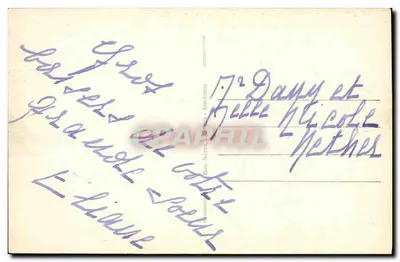 Gros
baisers de votre
grande soeur
Eliane
Mr Dany et
Melle Nicole
Nether
CPAPHIL